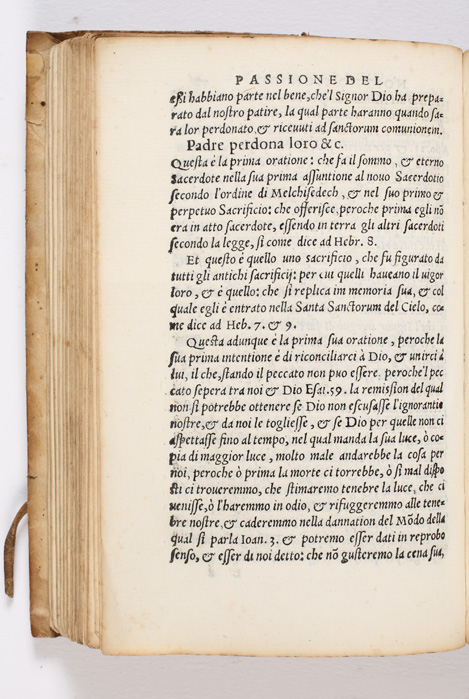 PASSIONE DEL
eßi habbiano parte nel bene, che'l Signor Dio ha prepa=
rato dal nostro patire, la qual parte haranno quando sa=
ra lor perdonato, & riceuuti ad sanctorum comunionem.
Padre perdona loro & c.
Questa è la prima oratione: che fa il sommo, & eterno
Sacerdote nella sua prima assuntione al nouo Sacerdotio
secondo l'ordine di Melchisedech, & nel suo primo &
perpetuo Sacrificio: che offerisce, peroche prima egli nõ
era in atto sacerdote, essendo in terra gli altri sacerdoti
secondo la legge, si come dice ad Hebr. 8.
Et questo è quello uno sacrificio, che fu figurato da
tutti gli antichi sacrificij: per cui quelli haueano il uigor
loro, & è quello: che si replica im memoria sua, & col
quale egli è entrato nella Santa Sanctorum del Cielo, co=
me dice ad Heb. 7. & 9.
Questa adunque è la prima sua oratione, peroche la
sua prima intentione è di riconciliarci à Dio, & unirci à
lui, il che, stando il peccato non puo essere, peroche'l pec
cato separa tra noi & Dio Esai. 59. la remission del qual
non si potrebbe ottenere se Dio non escusasse l'ignorantie
nostre, & da noi le togliesse, & se Dio per quelle non ci
aspettasse fino al tempo, nel qual manda la sua luce, ò co=
pia di maggior luce, molto male andarebbe la cosa per
noi, peroche ò prima la morte ci torrebbe, ò sì mal dispo
sti ci troueremmo, che stimaremo tenebre la luce, che ci
uenisse, ò l'haremmo in odio, & rifuggeremmo alle tene=
bre nostre, & caderemmo nella dannation del Mõdo della
qual si parla Ioan. 3. & potremo esser dati in reprobo
senso, & esser di noi detto: che nõ gusteremo la cena sua,